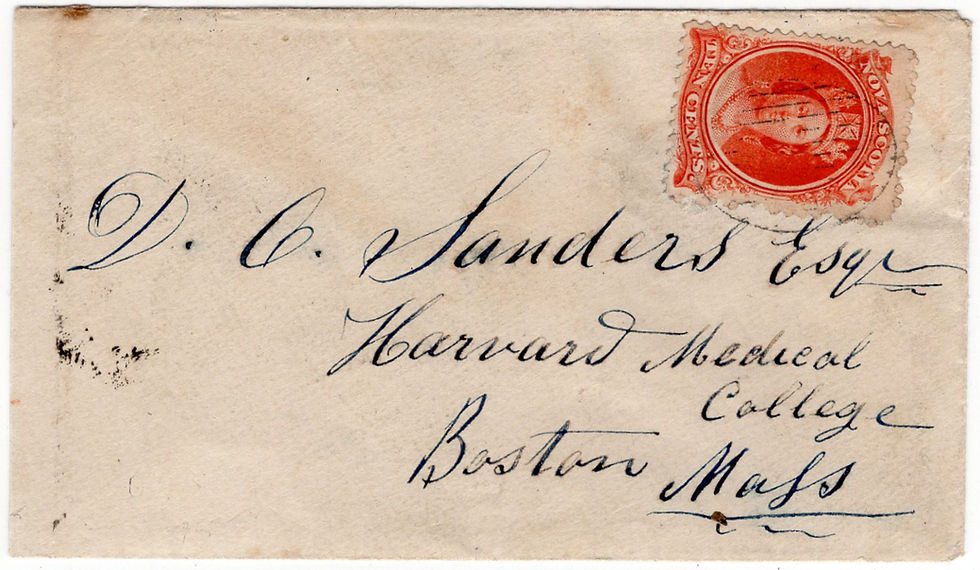 TEN CENTS.
NOVA SCOTIA
D. C. Sanders Esqr
Harvard Medical
College
Boston Mass